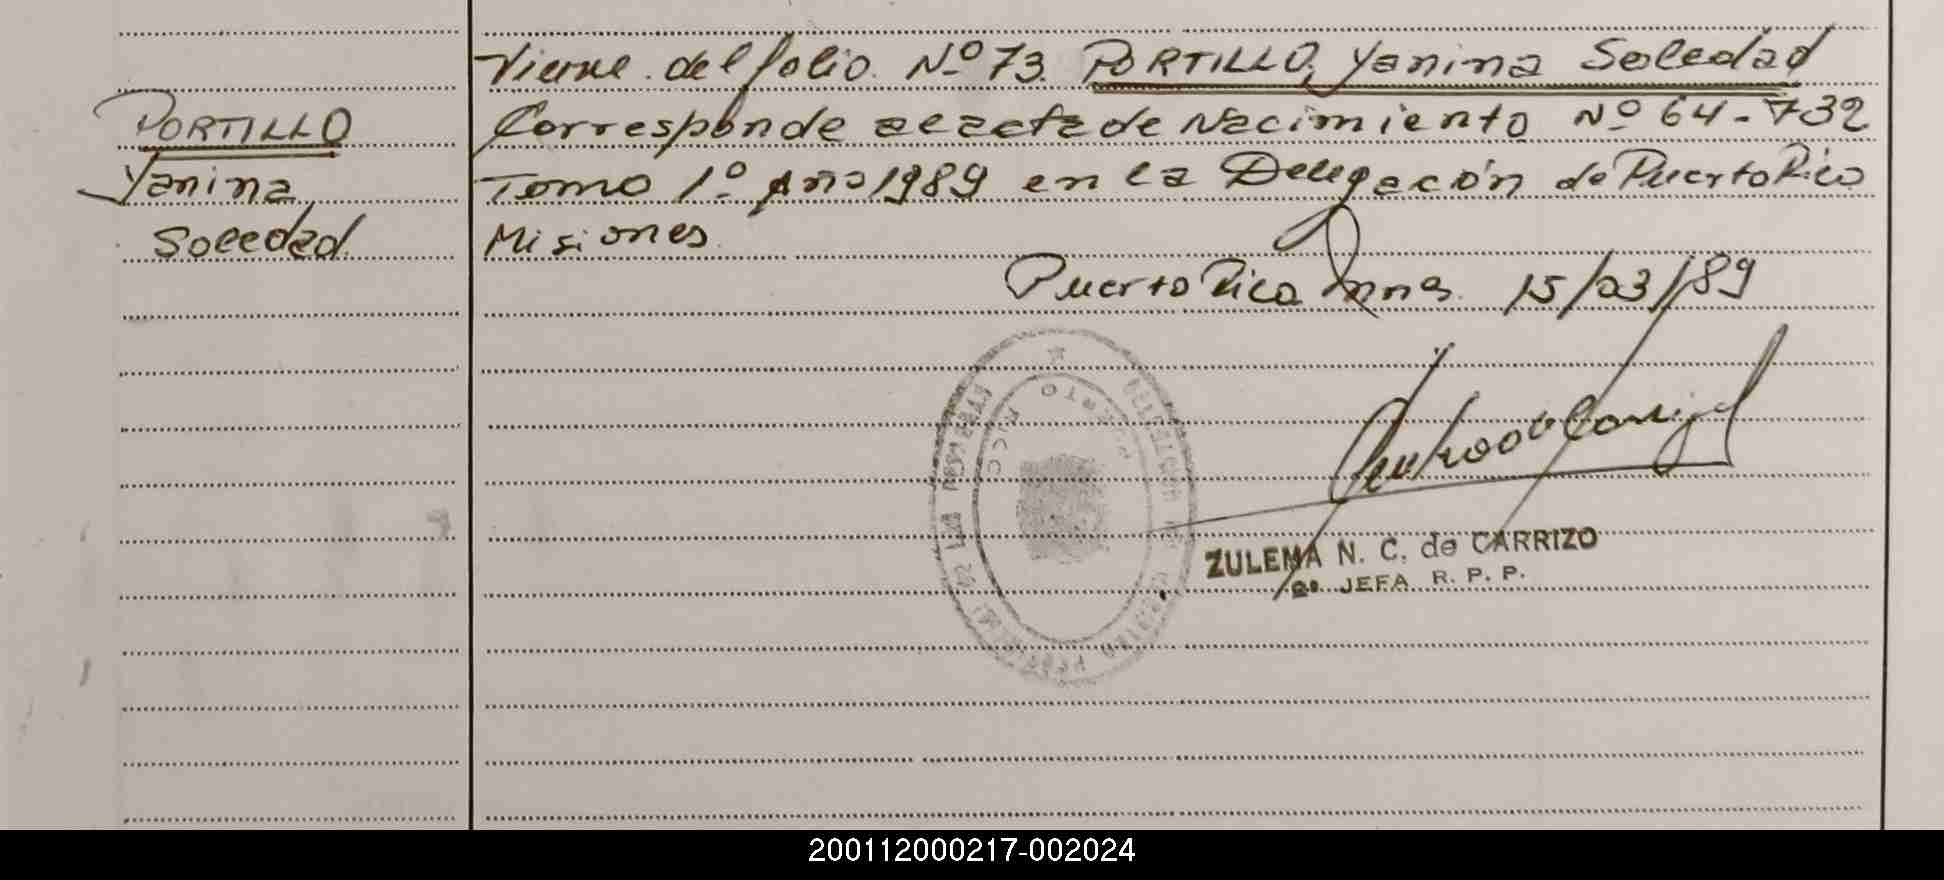 PORTILLO
Yanina
Soledad.
Viene del folio Nº 73. PORTILLO, Yanina Soledad
Corresponde al acta de Nacimiento Nº 64-732
Tomo 1º Año 1989 en la Delegación de Puerto Rico
Misiones.
Puerto Rico Mnes. 15/03/89
PUERTO RICO
ZULEMA N. C. de CARRIZO
JEFA R. P. P.
200112000217-002024